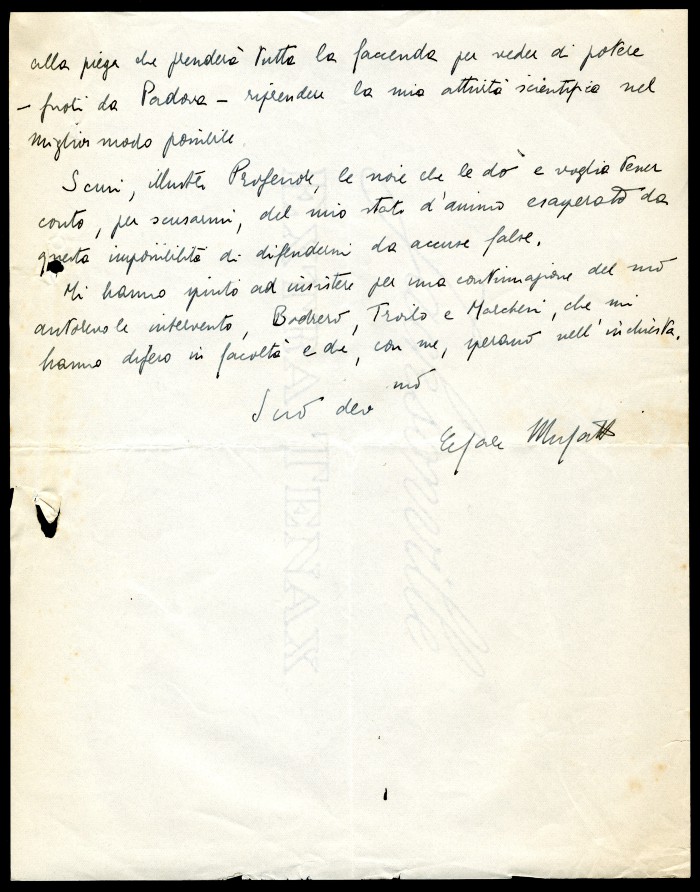 alla piega che prenderà tutta la faccenda per veder di potere
– fuori da Padova – riprendere la mia attività scientifica nel
miglior modo possibile.
Scusi, illustre Professore, le noie che le do e voglia tener
conto, per scusarmi, del mio stato d'animo esasperato da
questa impossibilità di difendermi da accuse false.
Mi hanno spinto ad insistere per una continuazione del suo
autorevole intervento, Bodrero, Troilo e Marchesi, che mi
hanno difeso in facoltà e che, con me, sperano nell'inchiesta.
Suo dev mo
Musatti
EXTRA TENAX